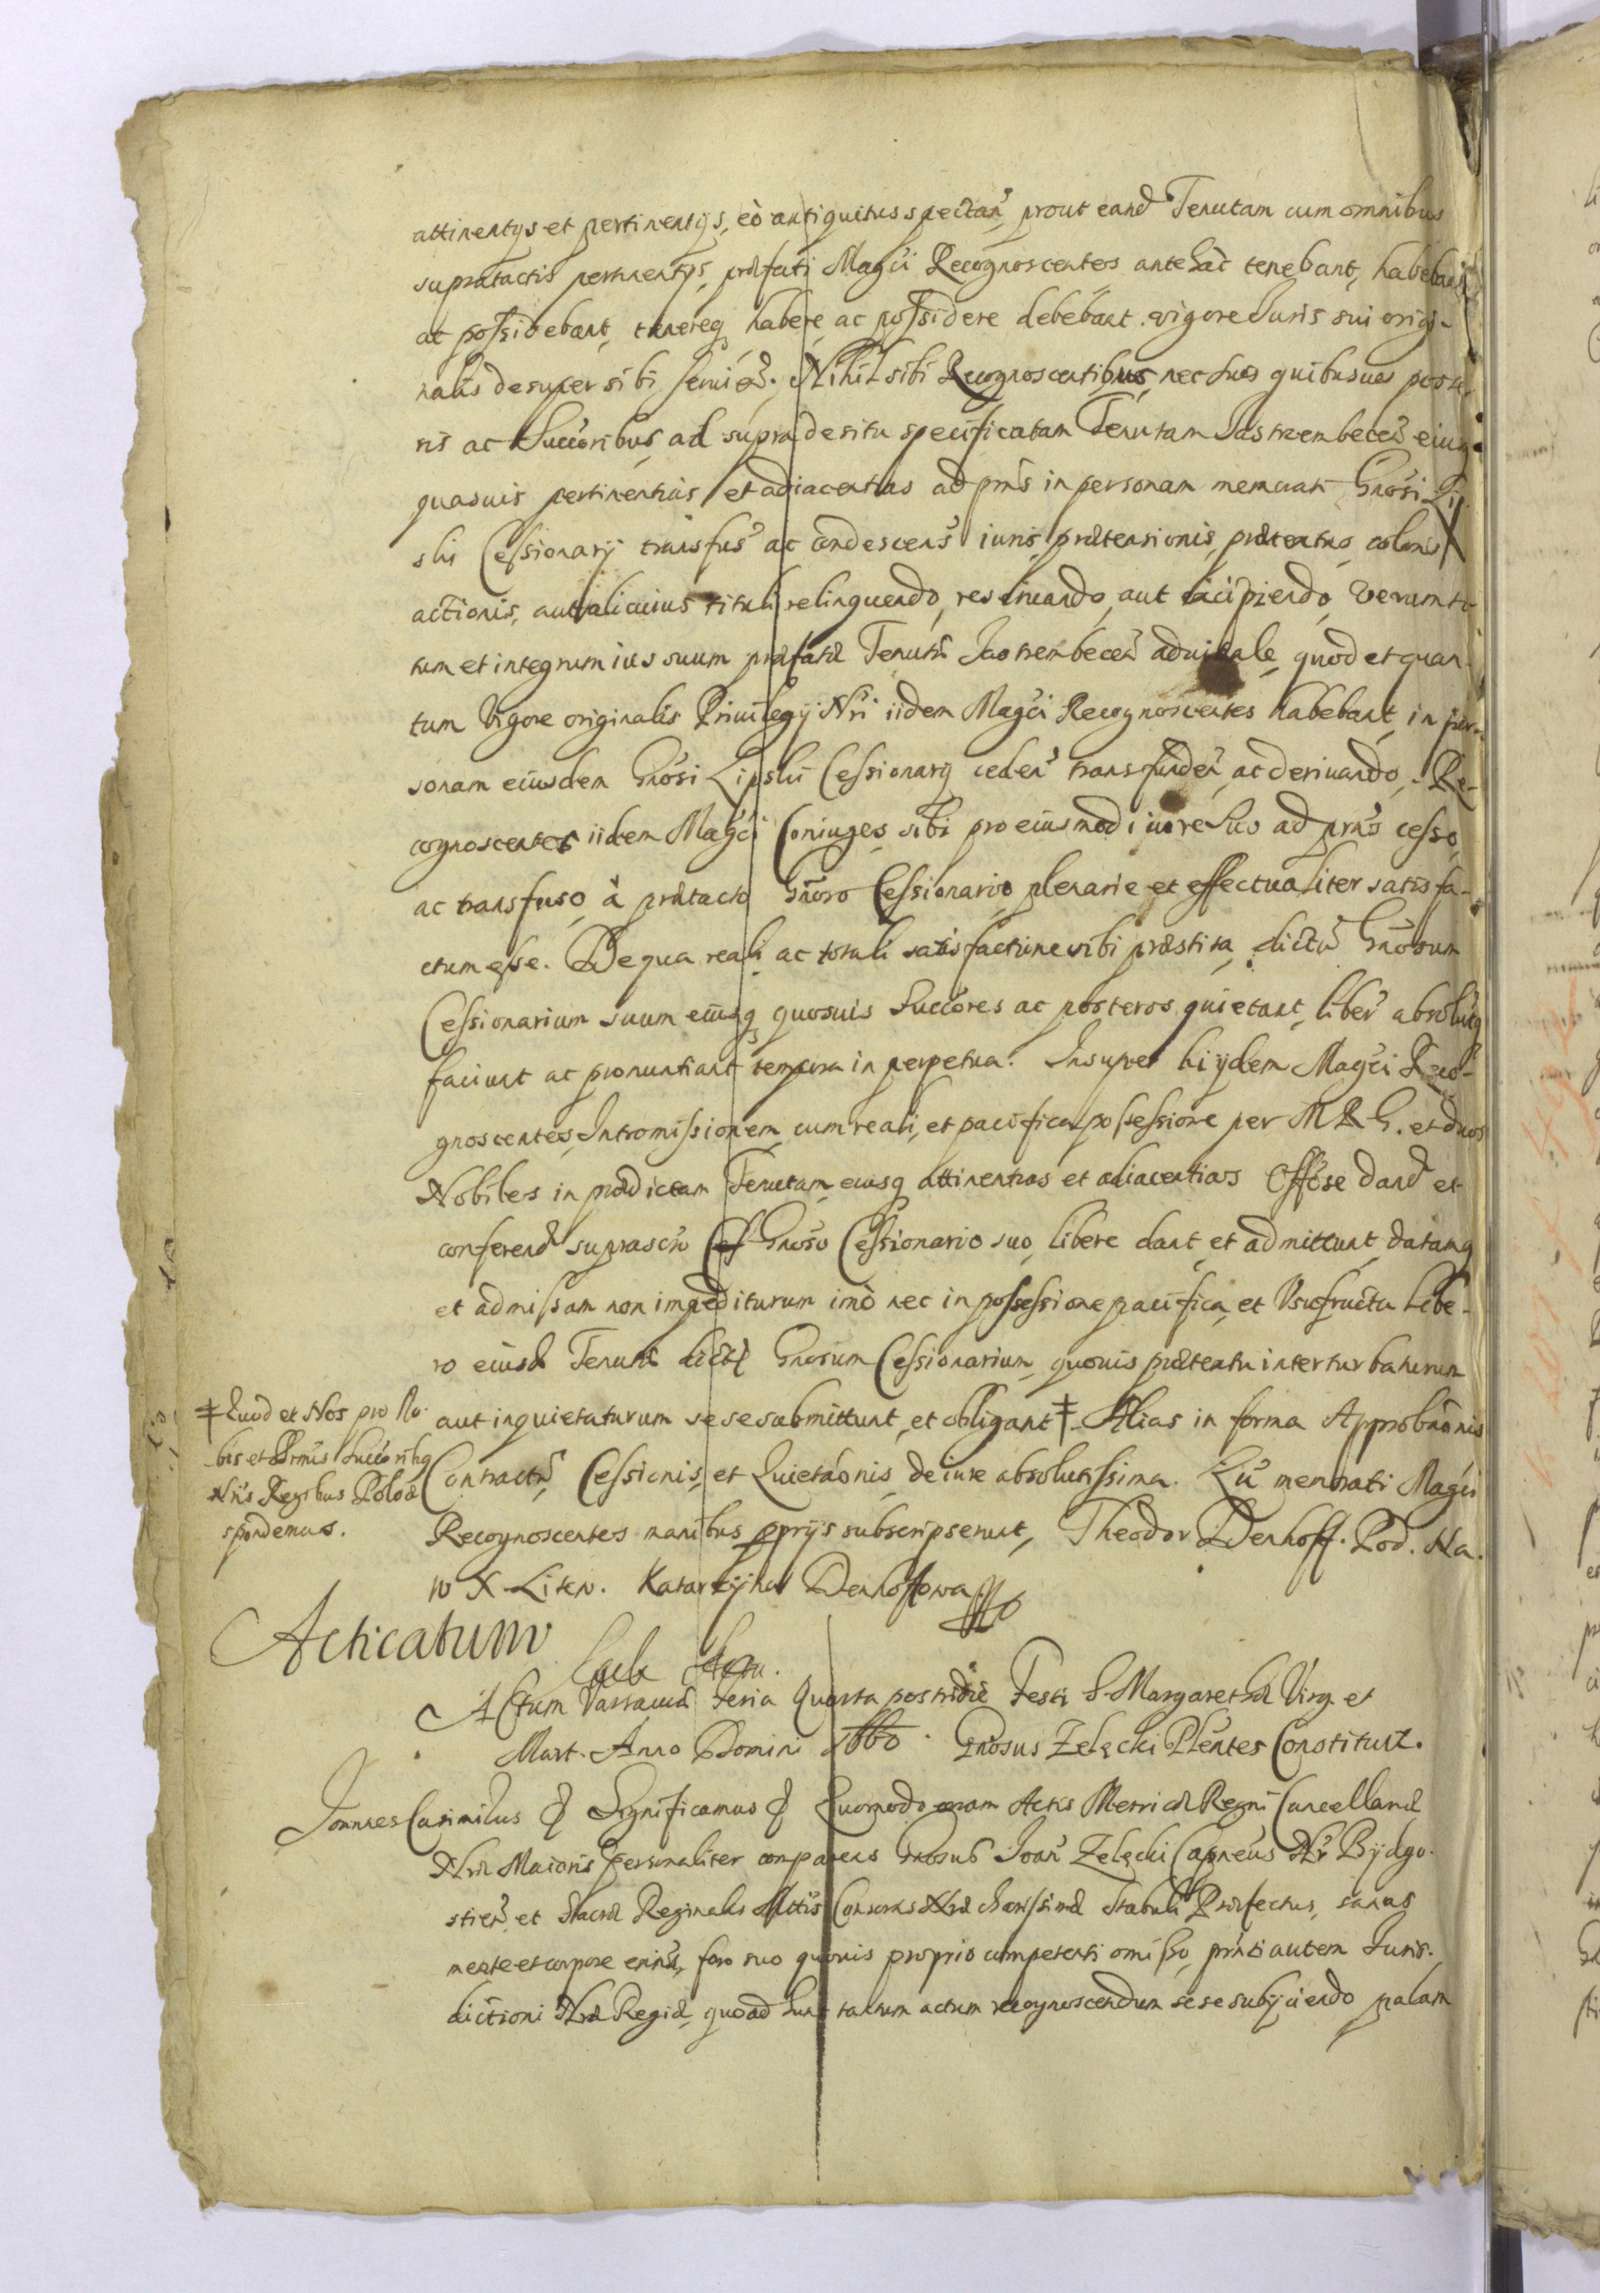 attinentijs et pertinentijs, eò antiquitus spectan̄, prout eand Tenutam cum omnibus
supratactis pertinentijs, præfati Magci Recognoscentes antehàc tenebant, habebant
ac possidebant, tenereq habere, ac possidere debebant. vigore Juris sui origi-
nalis desuper sibi servien̄. Nihil sibi Recognoscentibus, nec suis quibusvis poste-
ris ac Succoribus, ad supra de situ specificatam Tenutam Jastrembecen̄ eiusq
quasuis pertinentias et adiacentias ad prns in personam memorati Gnosi Lip-
ski Cessionarij transfus ac condescens iuris, prætensionis, prætextus, coloris
actionis, aut alicuius tituli relinquendo, reservando, aut excipiendo, verum to-
tum et integrum ius suum præfatæ Tenutæ Jastrembecen̄ advitale, quod et quan-
tum vigore originalis Privilegij Nri iidem Magci Recognoscentes habebant, in per-
sonam eiusdem Gnosi Lipski Cessionarij ceden̄ transfunden̄, ac derivando. Re-
cognoscentes iidem Magci Coniuges, sibi pro eiusmodi iure suo ad prns cesso,
ac transfuso, à prætacto Gnoso Cessionario plenarie et effectualiter satisfa-
ctum esse. De qua reali ac totali satisfactione sibi præstita, dictū Gnosum
Cessionarium suum eiusq quosuis Succores ac posteros quietant, liber absolutq
faciunt ac pronuntiant tempora in perpetua. Insuper hi ijdem Magci Reco-
gnoscentes, Intromissionem cum reali, et pacifica possessione per M. R. G. et duos
Nobiles in prædictam Tenutam, eiusq attinentias et adiacentias Offose dand et
conferend suprascto Ces Gnoso Cessionario suo, libere dant, et admittunt, datamq
et admissam non impediturum imò nec in possessione pacifica, et Usufructu libe-
ro eiusd Tenutæ dictū Gnosum Cessionarium, quovis prætextu interturbaturum
aut inquietaturum sese submittunt, et obligant ‡. Alias in forma Approbaonis
Contractū, Cessionis, et Quietaonis, de iure absolutissima. Qu memorati Magci
Recognoscentes manibus pprijs subscripserunt, Theodor Denhoff. Pod. Na.
W X Liten. Katarzijna Denhoffowa
‡ Quod et Nos pro No-
bis et Srmis Succoribq
Nris Regibus Poloæ
spondemus.
Acticatum
Actum Varsaviæ Feria Quarta postridie Festi S. Margarethæ Virg et
Mart. Anno Domini 1660. Gnosus Zelęcki Plentes Constituit.
Joannes Casimirus & Significamus & Quomodo coram Actis Metricæ Regni Cancellariæ
Nræ Maioris personaliter comparens Gnosus Joan̄ Zelęcki Capneus Nr Bydgo-
stien̄ et Sacræ Reginalis Mttis Consortis Nræ charissimæ Stabuli Præfectus, sanus
mente et corpore existen̄, foro suo quovis proprio competenti omisso, prnti autem Juris-
dictioni Nræ Regiæ, quoad hunc tantum actum recognoscendum sese subijciendo palam